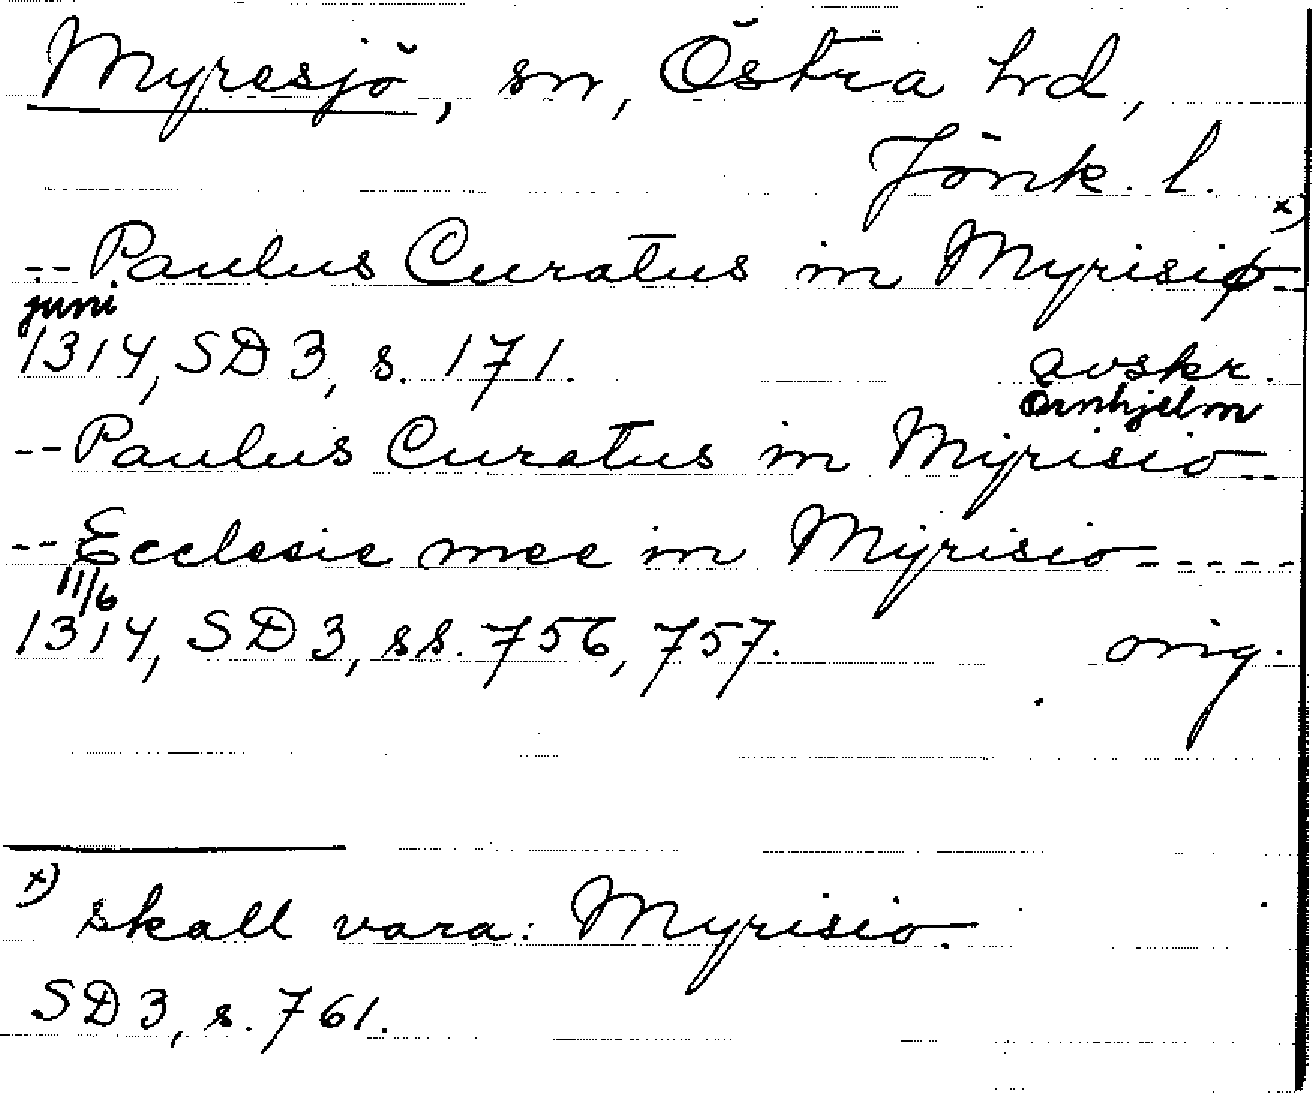 Myresjö, sn, Östra hrd,
Jönk. l.
-- Paulus Curatus in Myrisiø x) --
juni
1314, SD 3, s. 171. avskr.
Örnhjelm
-- Paulus Curatus in Myrisio --
-- Ecclesie mee in Myrisio -----
11/6
1314, SD 3, ss. 756, 757. orig.
x) skall vara: Myrisio.
SD 3, s. 761.